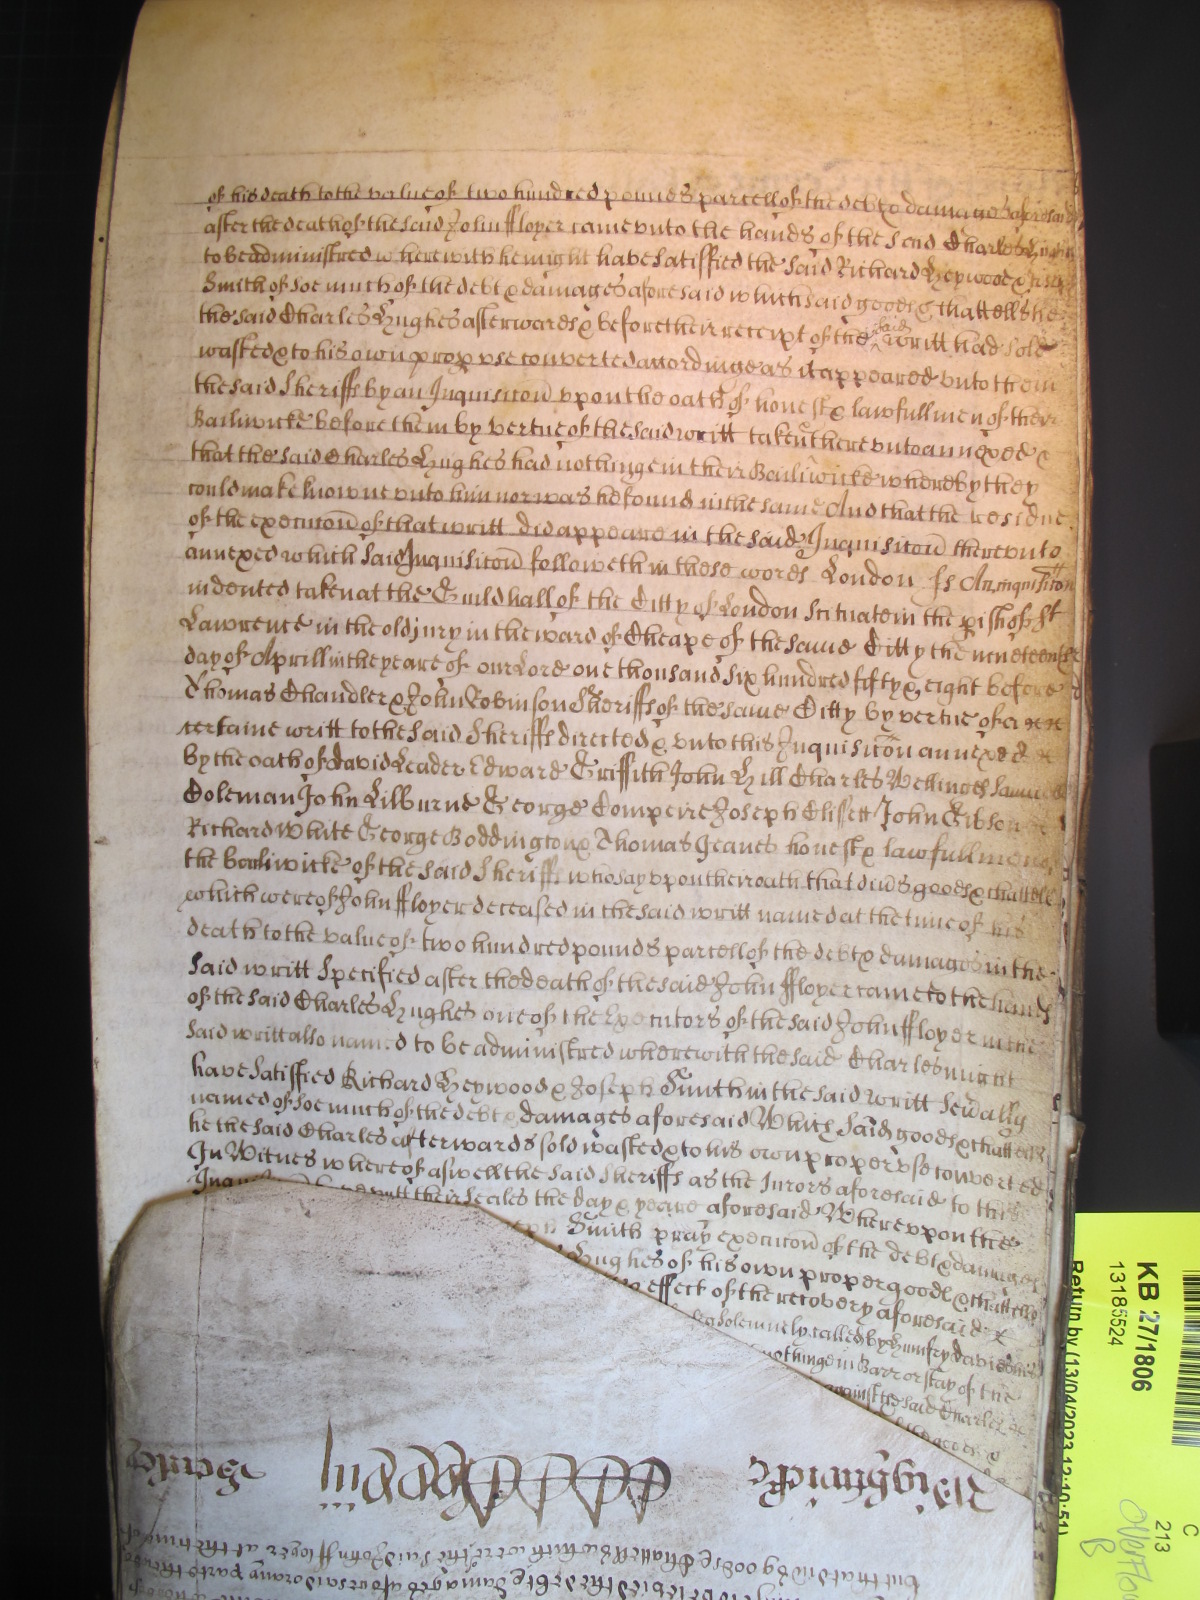 of his death to the value of two hundred pounds parcell of the debt & damages aforesaid
after the death of the said John ffloyer came unto the hands of the said Charles Hughes
to be administred wherewith he might have satisffied the said Richard Heywood &
Smith of soe much of the debt & damages aforesaid which said goods & chattells he
the said Charles Hughes afterwards & before their receipt of the said writt had sold
wasted & to his owne prop use converted accordinge as it appeared unto them
the said Sheriffs by an Inquisicon upon the oath of honest & lawfull men of their
Bailiwicke before them by vertue of the said writt taken thereunto annexed &
that the said Charles Hughes had nothinge in their Bailiwicke whereby they
could make knowne unto him nor was he found in the same And that the residue
of the execucon of that writt did appeare in the said Inquisicon thereunto
annexed which said Inquisicon followeth in these words London ss An inquisicon
indented taken at the Guildhall of the Citty of London scituate in the pish of St
Lawrence in the old Jury in the ward of Cheape of the same Citty the nineteenth
day of Aprill in the yeare of our Lord one thousand six hundred fifty & eight before
Thomas Chandler & John Robinson Sheriffs of the same Citty by vertue of a
certaine writt to the said Sheriffs directed & unto this Inquisicon annexed
by the oath of David Leader Edward Griffith John Hill Charles Wellings Samuell
Coleman John Lilburne George Compere Joseph Clissett John Gibson
Richard White George Boddington & Thomas Jeanes honest & lawfull men of
the bailiwicke of the said Sheriffs who say upon their oath that divs goods & chattells
which were of John ffloyer deceased in the said writt named at the time of his
death to the value of two hundred pounds parcell of the debt & damages in the
said writt specified after the death of the said John ffloyer came to the hands
of the said Charles Hughes one of the Executors of the said John ffloyer in the
said writt also named to be administred wherewith the said Charles might
have satisffied Richard Heywood & Joseph Smith in the said writt sevally
named of soe much of the debt & damages aforesaid Which said goods & chattells
he the said Charles afterwards sold wasted & to his own proper use converted
In Witnes whereof aswell the said Sheriffs as the Jurors aforesaid to this
putt their seales the day & yeare aforesaid Whereupon the
Smith pray execucon of the debt & damages
Hughes of his own proper goods & chattells
effect of the recovery aforesaid
solemnely called by Humfry Davis
nothinge in Barr or stay of the
against the said Charles
Wightwicke
Hughes
but that divs goods & chattells which were the said John ffloyer at the time of
the debt & damages aforesaid or any parte thereof
KB 27/1806
13185524
Return by (13/04/2023 12:10:51)
C
213
Overflow
B